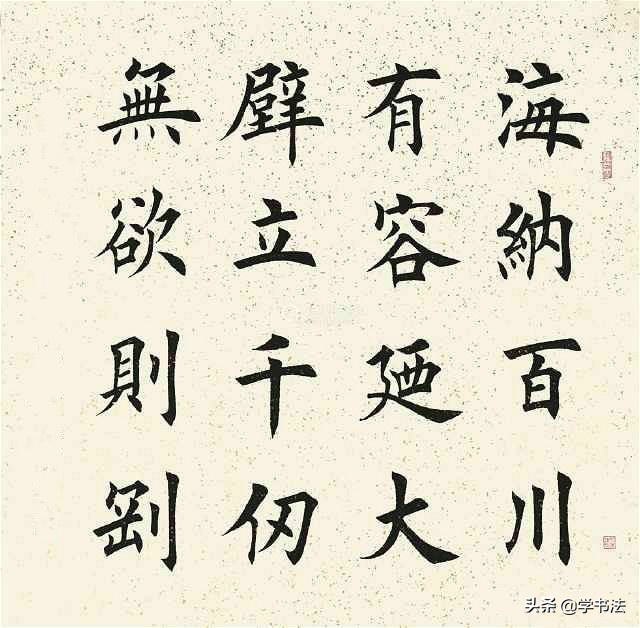 海納百川
有容廼大
辟立千仞
無欲則剛
头条 @学书法